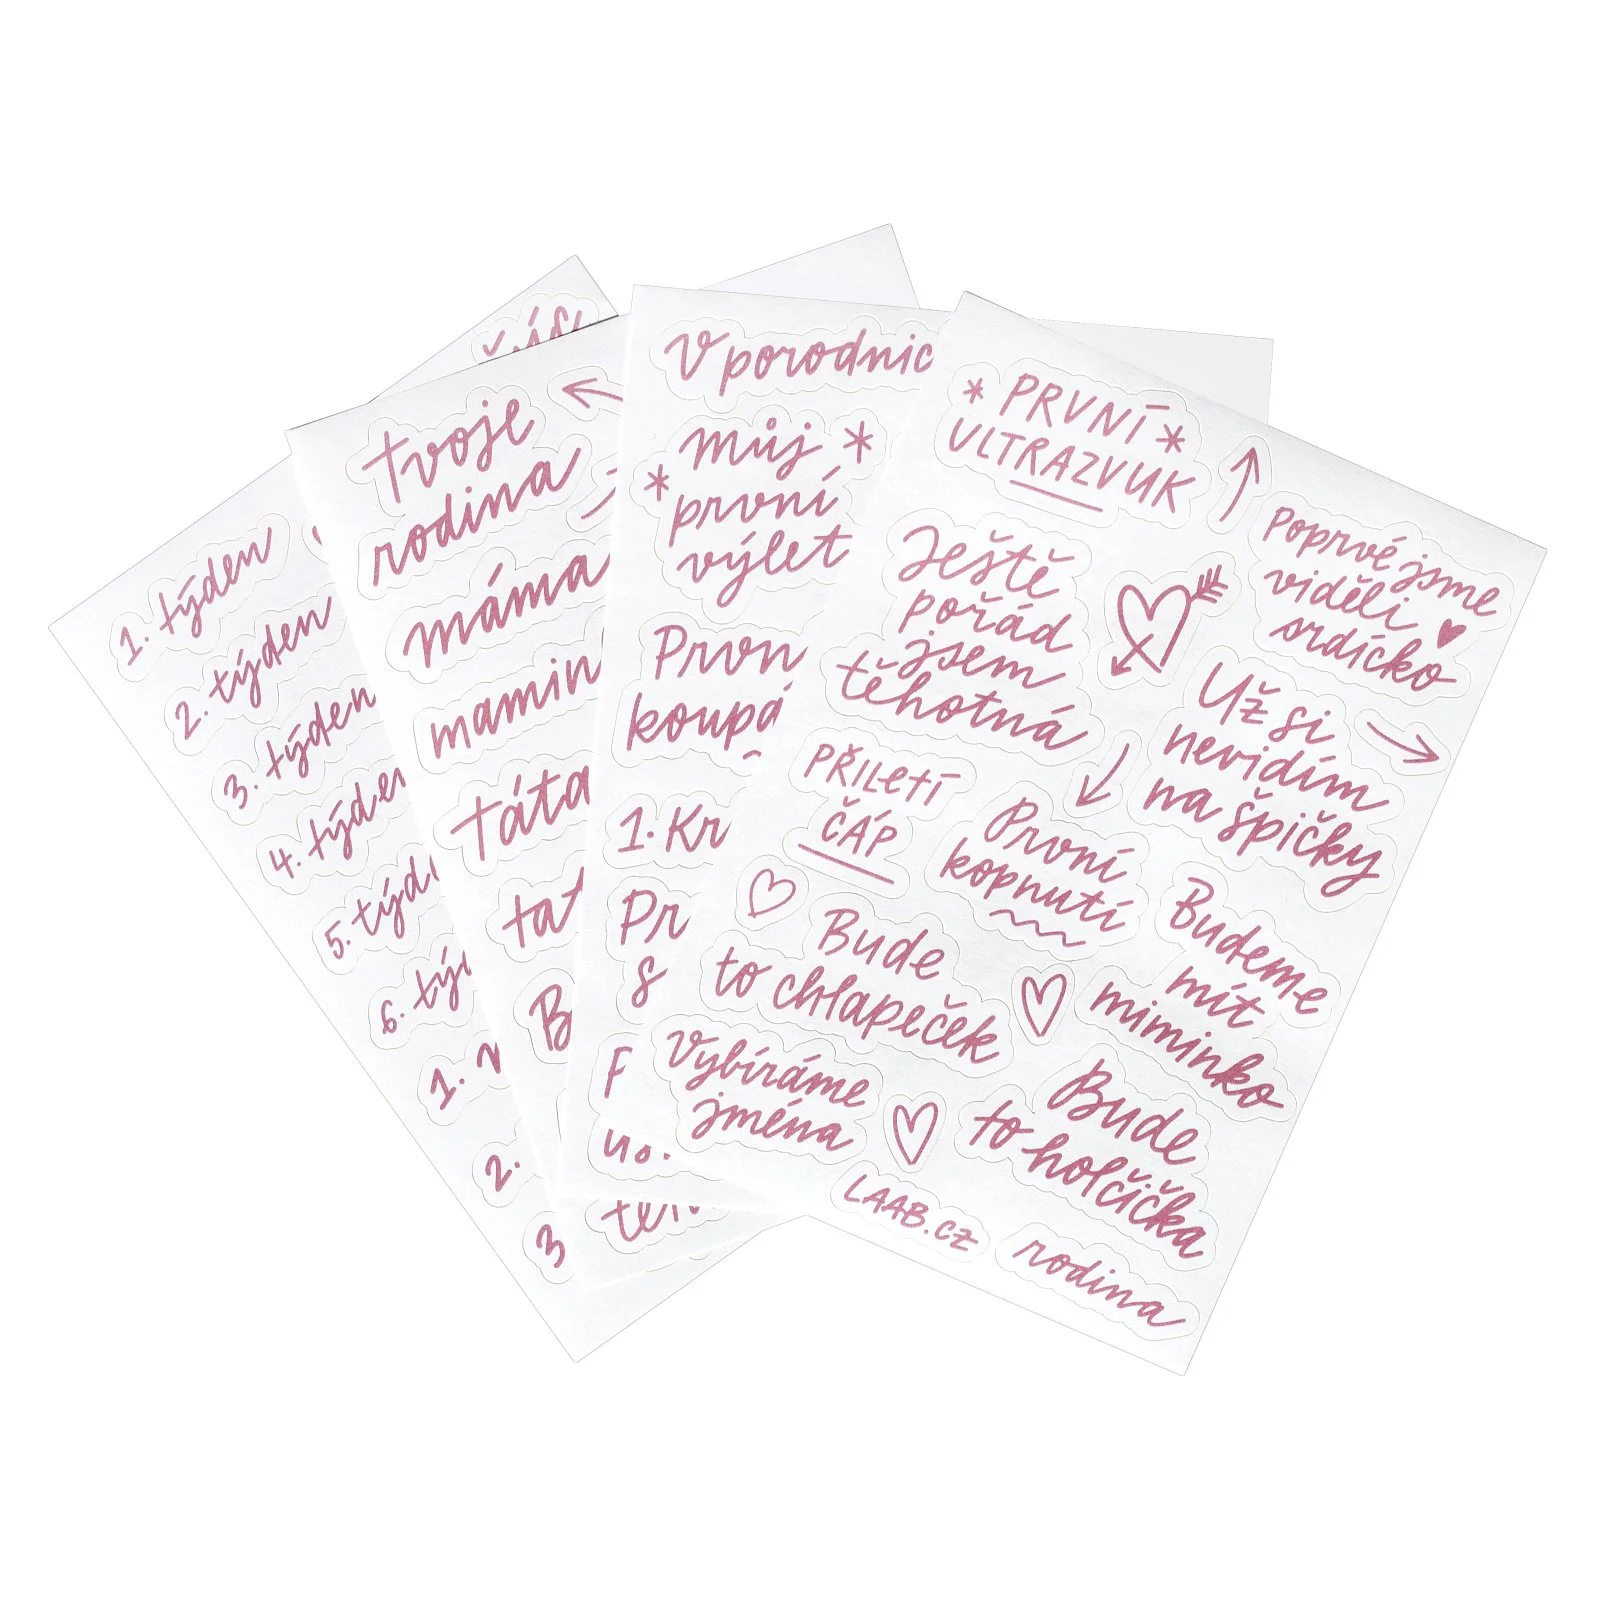 1. týden
2. týden
3. týden
4. týden
5. týd
6. tý
1.
2.
3
tvoje
rodina
máma
mamin
táta
tat
B
V porodnic
můj
první
výlet
Prvn
koupá
1. Kr
Pr
s
F
us.
* PRVNÍ *
ULTRAZVUK
Poprvé jsme
viděli
srdíčko
Ještě
pořád
jsem
těhotná
Už si
nevidím
na špičky
PŘILETÍ
ČÁP
První
kopnutí
Budeme
mít
miminko
Bude
to chlapeček
Vybíráme
jména
Bude
to holčička
LAAB.CZ
rodina